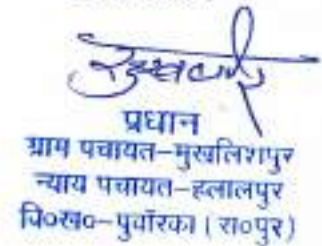 प्रधान
ग्राम पचायत–मुखलिशपुर
न्याय पचायत–हलालपुर
वि०ख०–पुवॉरका ( रा०पुर)